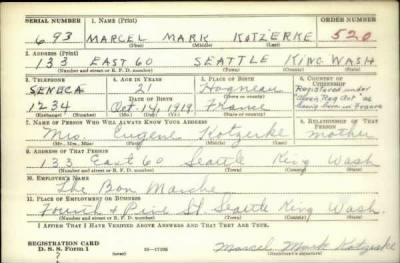 SERIAL NUMBER 1. NAME (Print) ORDER NUMBER
693 MARCEL MARK KOTZERKE 520
(First) (Middle) (Last)
2. ADDRESS (Print)
133 EAST 60 SEATTLE KING WASH
(Number and street or R. F. D. number) (Town) (County) (State)
3. TELEPHONE 4. AGE IN YEARS 5. PLACE OF BIRTH 6. COUNTRY OF CITIZENSHIP
SENECA 21 Registered under
DATE OF BIRTH (Town or county) "Alien Reg Act" as
1234 Oct. 14, 1919 France being born in France
(Exchange) (Number) (Mo.) (Day) (Yr.) (State or country)
7. NAME OF PERSON WHO WILL ALWAYS KNOW YOUR ADDRESS 8. RELATIONSHIP OF THAT PERSON
Mrs. Eugene Kotzerke mother
(Mr., Mrs., Miss) (First) (Middle) (Last)
9. ADDRESS OF THAT PERSON
133 East 60 Seattle King Wash
(Number and street or R. F. D. number) (Town) (County) (State)
10. EMPLOYER'S NAME
The Bon Marche
11. PLACE OF EMPLOYMENT OR BUSINESS
Fourth & Pine St. Seattle King Wash.
(Number and street or R. F. D. number) (Town) (County) (State)
I AFFIRM THAT I HAVE VERIFIED ABOVE ANSWERS AND THAT THEY ARE TRUE.
REGISTRATION CARD
D. S. S. Form 1 Marcel Mark Kotzerke